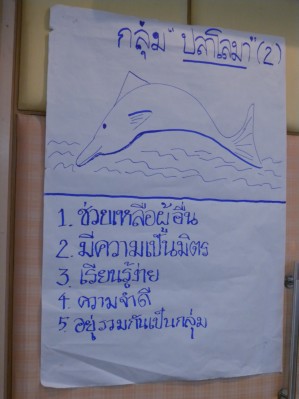 กลุ่ม "ปลาโลมา" (2)
1. ช่วยเหลือผู้อื่น
2. มีความเป็นมิตร
3. เรียนรู้ง่าย
4. ความจำดี
5. อยู่รวมกันเป็นกลุ่ม